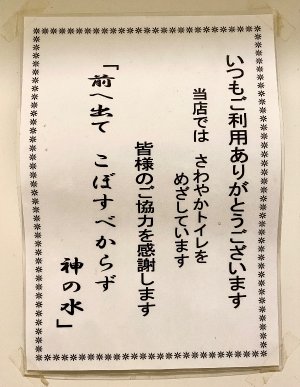 いつもご利用ありがとうございます
当店では さわやかトイレを
めざしています
皆様のご協力を感謝します
「前へ出て こぼすべからず
神の水」